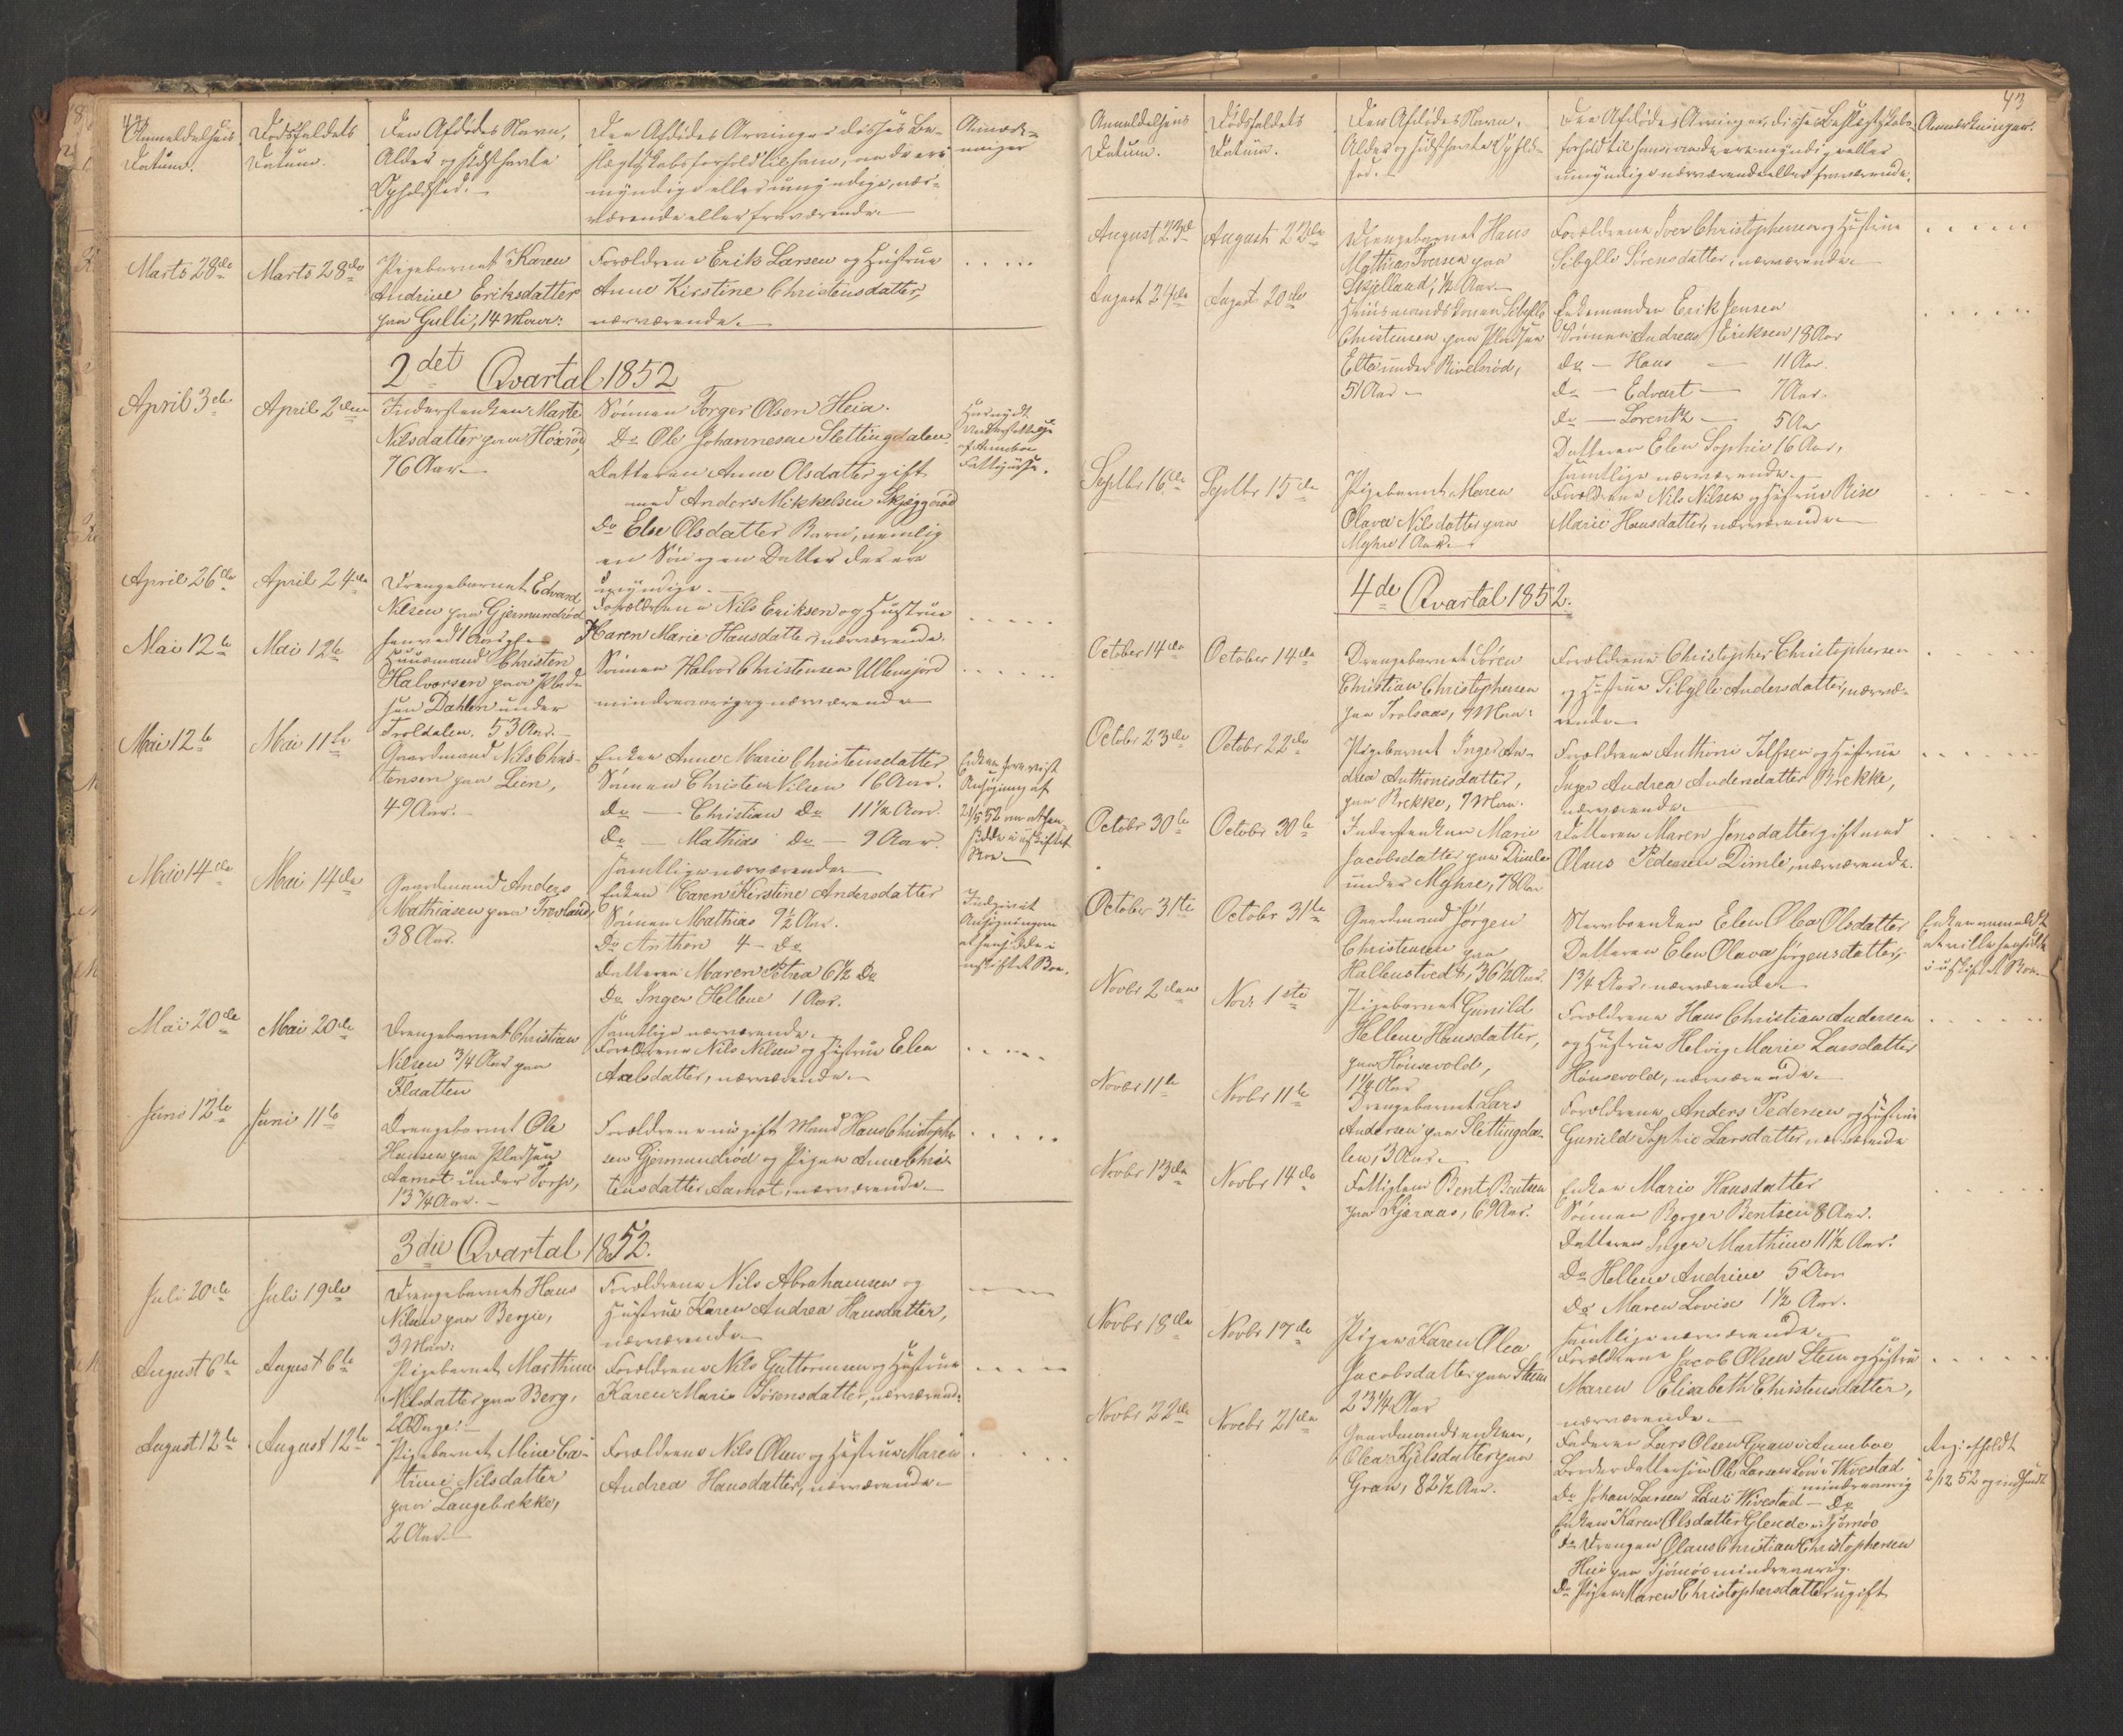 42
Anmeldelsens
Datum.
Dødsfaldets
Datum.
Den Afdødes Navn,
Alder og sidst havte
Opholdsted.
Den Afdødes Arvinger disses Be-
slægtskabsforhold til ham, om de ere
myndige eller umyndige, nær-
værende eller fraværende.
Anmærk-
ninger
Marts 28de
Marts 28de
Pigebarnet Karen
Andrine Eriksdatter
paa Gulli, 14 Maan:
Forældrene Erik Larsen og Hustrue
Anne Kirstine Christensdatter,
nærværende.
2det Qvartal 1852
April 3die
April 2den
Inderstenken Marte
Nilsdatter paa Høxrød,
76 Aar.
Sønnen Torger Olsen Heia.
Do Ole Johannesen Slettingdalen
Datteren Anne Olsdatter gift
med Anders Mikkelsen Skjeggerød
Do Else Olsdatter Barn, nemlig
en Søn og en Datter der ere
umyndige.
Har nydt
Understøttelse
af Anneboe
Fattigkasse.
April 26de
April 24de
Drengebarnet Edvard
Nilsen paa Gjermundrød
henved 1 Aar gl.
Forældrene Nils Eriksen og Hustrue
Karen Marie Hansdatter, nærværende.
Mai 12te
Mai 12te
Huusmand Christen
Halvorsen paa Plads-
sen Dahlen under
Troldalen. 53 Aar.
Sønnen Halvor Christensen Ulensjord
mindreaarig og nærværende
Mai 12te
Mai 11te
Gaardmand Nils Chris-
tensen paa Lien,
49 Aar.
Enken Anne Marie Christensdatter
Sønnen Christen Nilsen 16 Aar.
do — Christian do 11½ Aar.
do — Mathias do — 9 Aar.
samtlige nærværende
Enken foreviist
Ansøgning af
21/5 52 om at hen-
sidde i uskiftet
Boe.
Mai 14de
Mai 14de
Gaardmand Anders
Mathiasen paa Trevland,
38 Aar.
Enken Caren Kirstine Andersdatter
Sønnen Mathias 9½ Aar.
Do Anthon 4 — do
Datteren Maren Petrea 6½ Do
Do Inger Hellene 1 Aar.
samtlige nærværende.
Indgivet
Ansøgning om
at hensidde i
uskiftet Boe.
Mai 20de
Mai 20de
Drengebarnet Christian
Nilsen ¾ Aar paa
Flaatten
Forældrene Nils Nilsen og Hustrue Elen
Axelsdatter, nærværende.
Juni 12te
Juni 11te
Drengebarnet Ole
Hansen paa Pladsen
Aamot under Torp,
13¾ Aar.
Forældrene nu gift Mand Hans Christopher-
sen Gjermundrød og Pigen Anne Chris-
tensdatter Aamot, nærværende.
3die Qvartal 1852.
Juli 20de
Juli 19de
Drengebarnet Hans
Nilsen paa Bergie,
3 Maan:
Forældrene Nils Abrahamsen og
Hustrue Karen Andrea Hansdatter,
nærværende
August 6te
August 6te
Pigebarnet Marthine
Nilsdatter paa Berg,
20 Dage.
Forældrene Nils Guttormsen og Hustrue
Karen Marie Sørensdatter, nærværende
August 12te
August 12te
Pigebarnet Mine Ca-
trine Nilsdatter
paa Langebrekke,
2 Aar.
Forældrene Nils Olsen og Hustrue Maren
Andrea Hansdatter, nærværende.
43
Anmeldelsens
Datum.
Dødsfaldets
Datum.
Den Afdødes Navn,
Alder og sidst havte Ophold-
sted.
Den Afdødes Arvinger, disses Beslægtskabs-
forhold til ham, om de ere myndige eller
umyndige nærværende eller fraværende.
Anmærkninger.
August 23de
August 22de
Drengebarnet Hans
Mathias Iversen paa
Skjelland, ½ Aar.
Forældrene Iver Christophersen og Hustrue
Sibylle Sørensdatter, nærværende
August 24de
August 20de
Huusmandskonen Sibylle
Christensen paa Pladsen
Elte under Rivelsrød,
51 Aar
Enkemanden Erik Jensen
Sønnen Andreas Eriksen 18 Aar
do — Hans — 11 Aar.
do — Edvart — 7 Aar.
do — Lorentz — 5 Aar
Datteren Elen Sophie 16 Aar,
samtlige nærværende.
Septbr 16de
Septbr 15de
Pigebarnet Maren
Olava Nilsdatter paa
Myhre 1 Aar.
Forældrene Nils Nilsen og Hustrue Rise
Marie Hansdatter, nærværende
4de Qvartal 1852.
October 14de
October 14de
Drengebarnet Søren
Christian Christophersen
paa Trolsaas, 7 Maan:
Forældrene Christopher Christophersen
og Hustrue Sibylle Andersdatter, nærvæ-
rende
October 23de
Octobr 22de
Pigebarnet Inger An-
drea Anthonisdatter,
paa Brekke, 7 Maan.
Forældrene Anthoni Tolfsen og Hustrue
Inger Andrea Andersdatter Brekke,
nærværende.
Octobr 30te
Octobr 30te
Inderstenken Marie
Jacobsdatter paa Dimle
under Myhre, 78 Aar
Datteren Maren Jensdatter gift med
Olaus Pedersen Dimle, nærværende.
October 31te
Octobr 31te
Gaardmand Jørgen
Christensen paa
Hallenstvedt, 36½ Aar.
Stervboenken Elen Olea Olsdatter
Datteren Elen Olava Jørgensdatter,
1¾ Aar, nærværende
Enken anmeldte
at ville hensidde
i uskiftet Boe.
Novbr 2den
Novr. 1ste
Pigebarnet Gunild
Hellene Hansdatter,
paa Hønsevold,
1½ Aar
Forældrene Hans Christian Andersen
og Hustrue Helvig Marie Larsdatter
Hønsevold, nærværende.
Novbr 11te
Novbr 11te
Drengebarnet Lars
Andersen paa Slettingda-
len, 3 Aar.
Forældrene Anders Pedersen og Hustrue
Gunild Sophie Larsdatter nærværende
Novbr 13de
Novbr 14de
Fattiglem Bent Bentsen
paa Kjæraas, 69 Aar.
Enken Marie Hansdatter
Sønnen Børger Bentsen 8 Aar.
Datteren Inger Marthine 11½ Aar.
Do Hellene Andrine 5 Aar
Do Maren Lovise 1½ Aar.
samtlige nærværende.
Novbr 18de
Novbr 17de
Pigen Karen Olea
Jacobsdatter paa Steen
23¼ Aar
Forældrene Jacob Olsen Steen og Hustrue
Maren Elisabeth Christensdatter,
nærværende.
Novbr 22de
Novebr 21de
Gaardmandsenken,
Olea Kjelsdatter paa
Gran, 82½ Aar.
Faderen Lars Olsen Gran i Anneboe
Broderdattersøn Ole Larsen Løv i Wivestad
mindreaarig
Do Johan Larsen Løv i Wivestad — Do
Enken Karen Olsdatter Glende i Tjømøe
Do Drengen Olaus Christian Christophersen
Hui paa Tjømøe mindreaarig.
Do Pigen Maren Christophersdatter ugift
Reg: afholdt
2/12 52 og indsendt